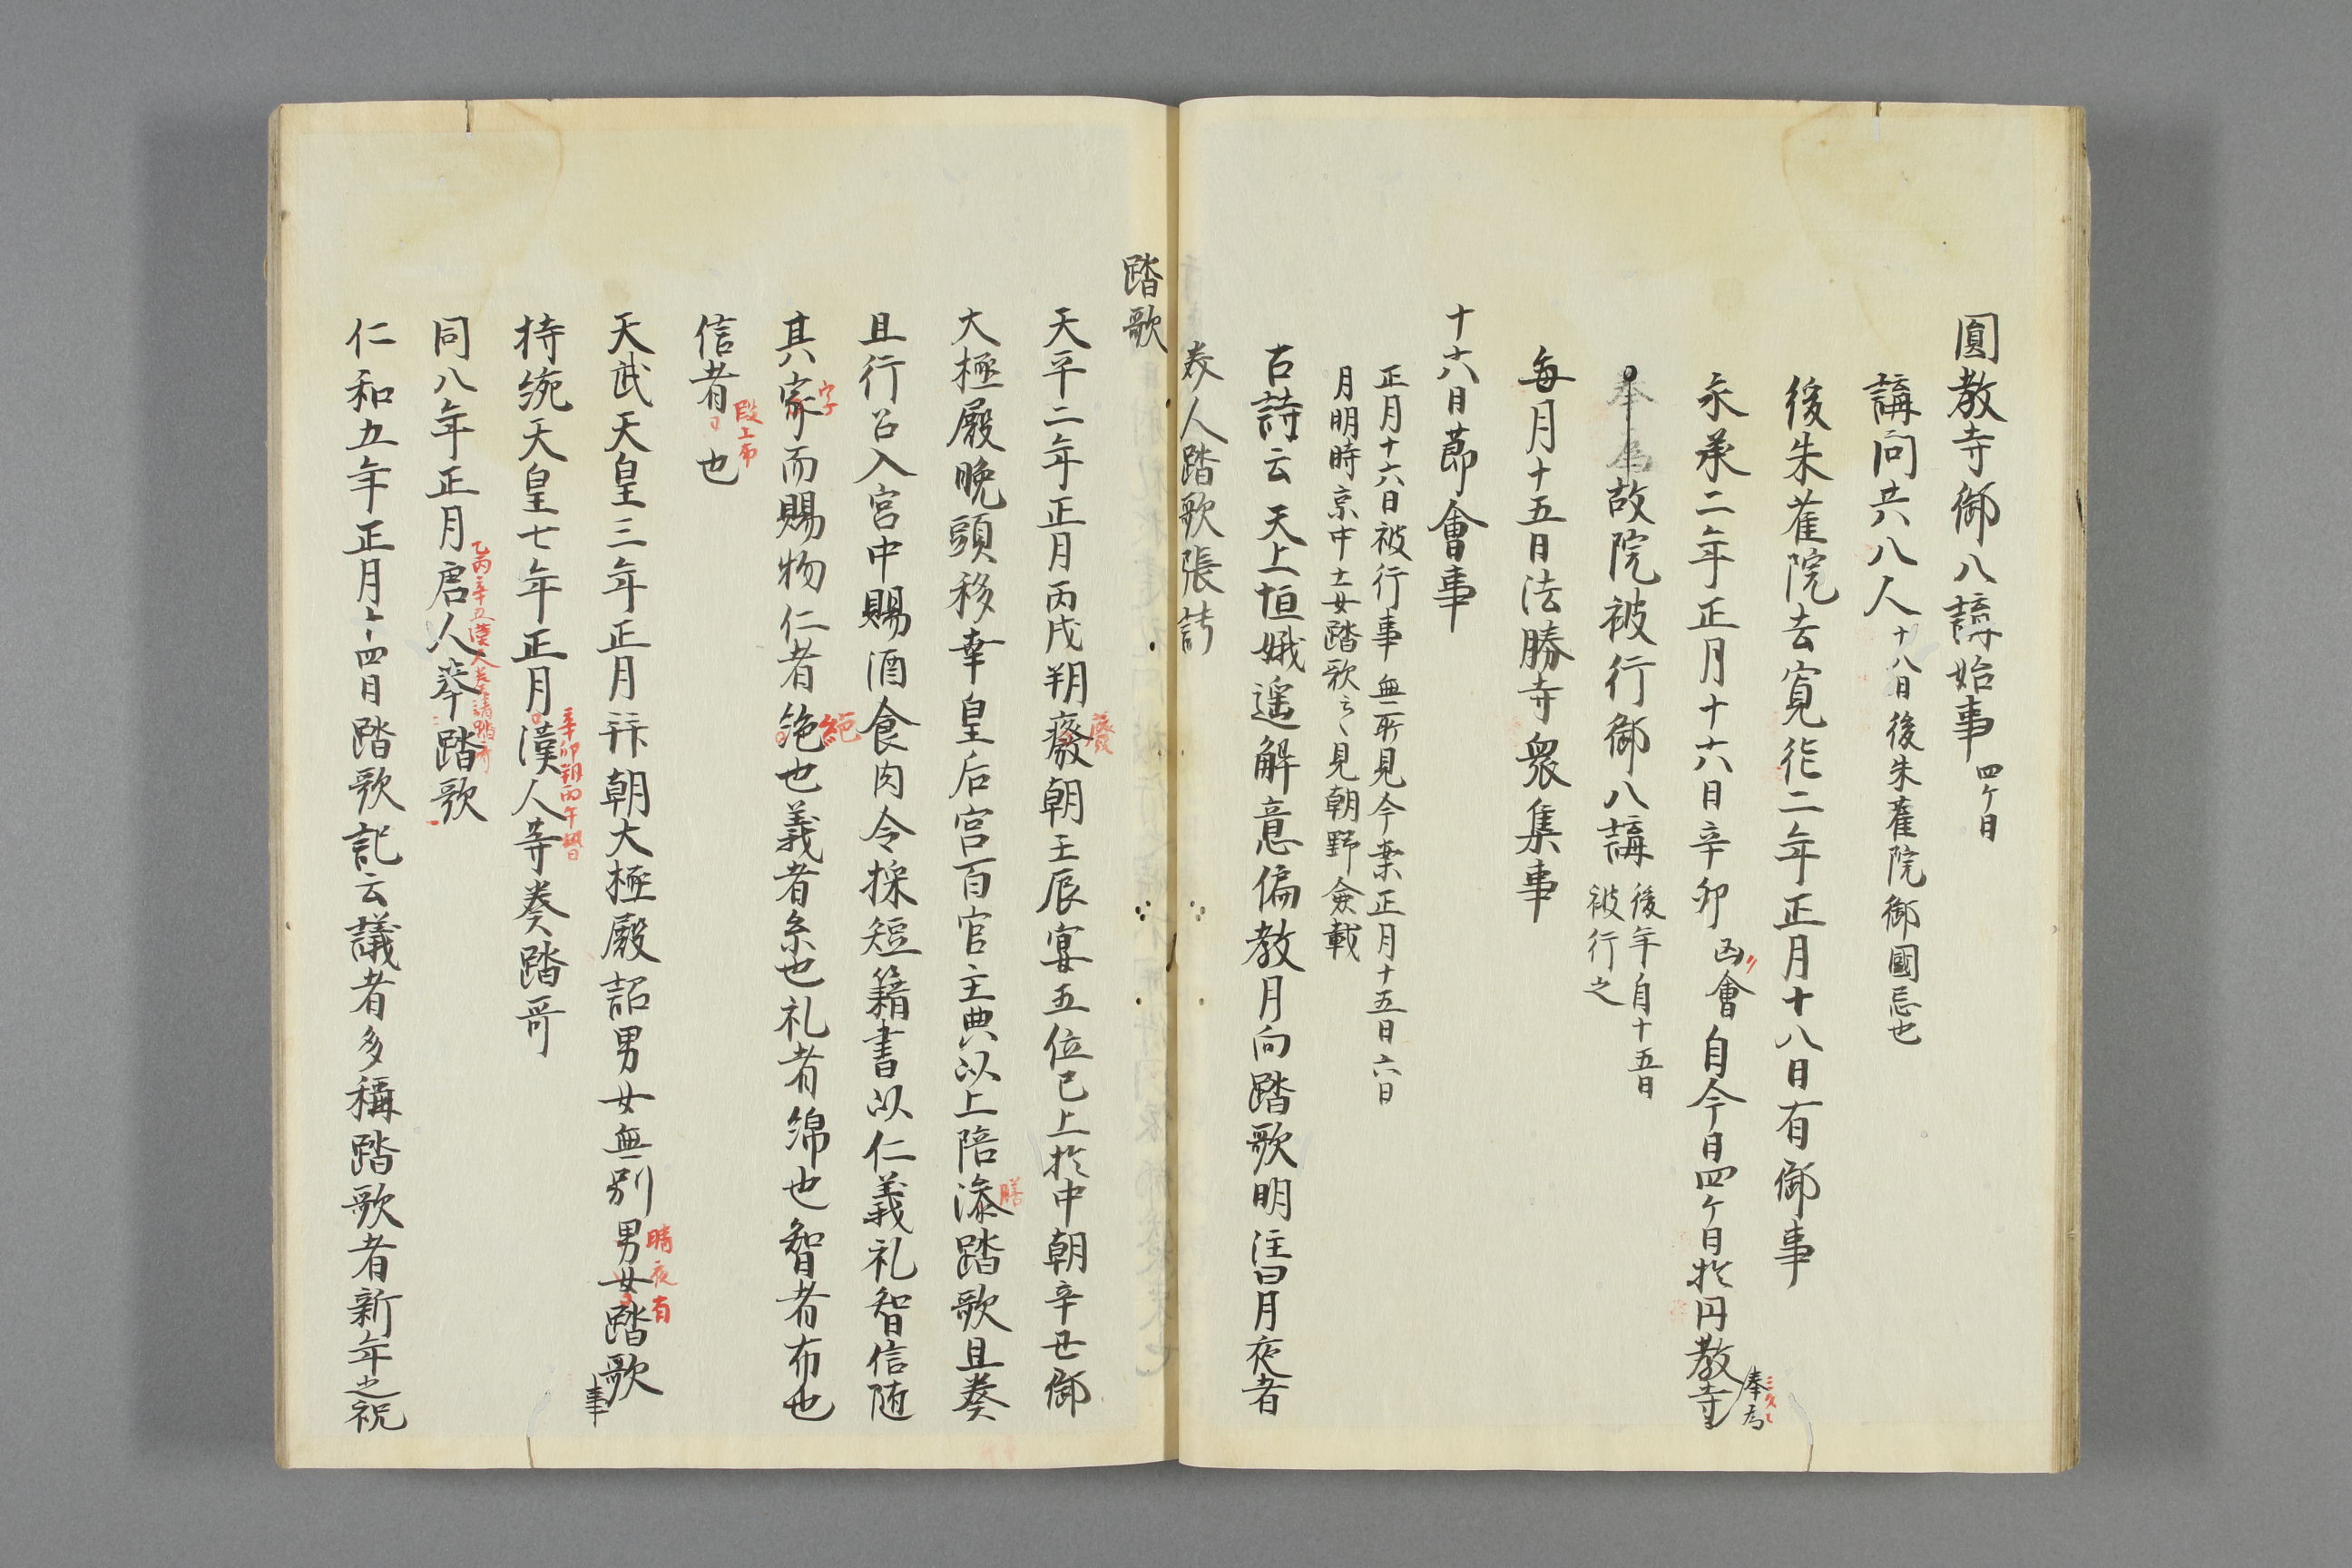 圓教寺御八講始事 四ケ日
講問共八人 十八日後朱雀院御國忌也
後朱雀院去寛徳二年正月十八日有御事
永承二年正月十六日辛卯 凶會 自今日四ケ日於円教寺 奉為
奉為故院被行御八講 後年自十五日
被行之
毎月十五日法勝寺衆集事
十六日莭會事
正月十六日被行事無所見今案正月十五日六日
月明時京中士女踏歌云々見朝野僉載
古詩云天上恒娥遥解意偏教月向踏歌明注曰月夜者
奏人踏歌張詩
踏歌
天平二年正月丙戌朔癈朝壬辰宴五位已上於中朝辛丑御
廢
大極殿晩頭移幸皇后宮百官主典以上陪添踏歌且奏
膳
且行召入宮中賜酒食肉令採短籍書以仁義礼智信随
其家而賜物仁者絁也義者糸也礼者綿也智者布也
字
絁
信者也
段上布
天武天皇三年正月拜朝大極殿詔男女無別男女踏歌事
晴夜有
持統天皇七年正月漢人等奏踏哥
辛卯朔丙午
同八年正月唐人奏踏歌
辛丑漢人奏請踏哥
仁和五年正月十四日踏歌記云議者多稱踏歌者新年之祝